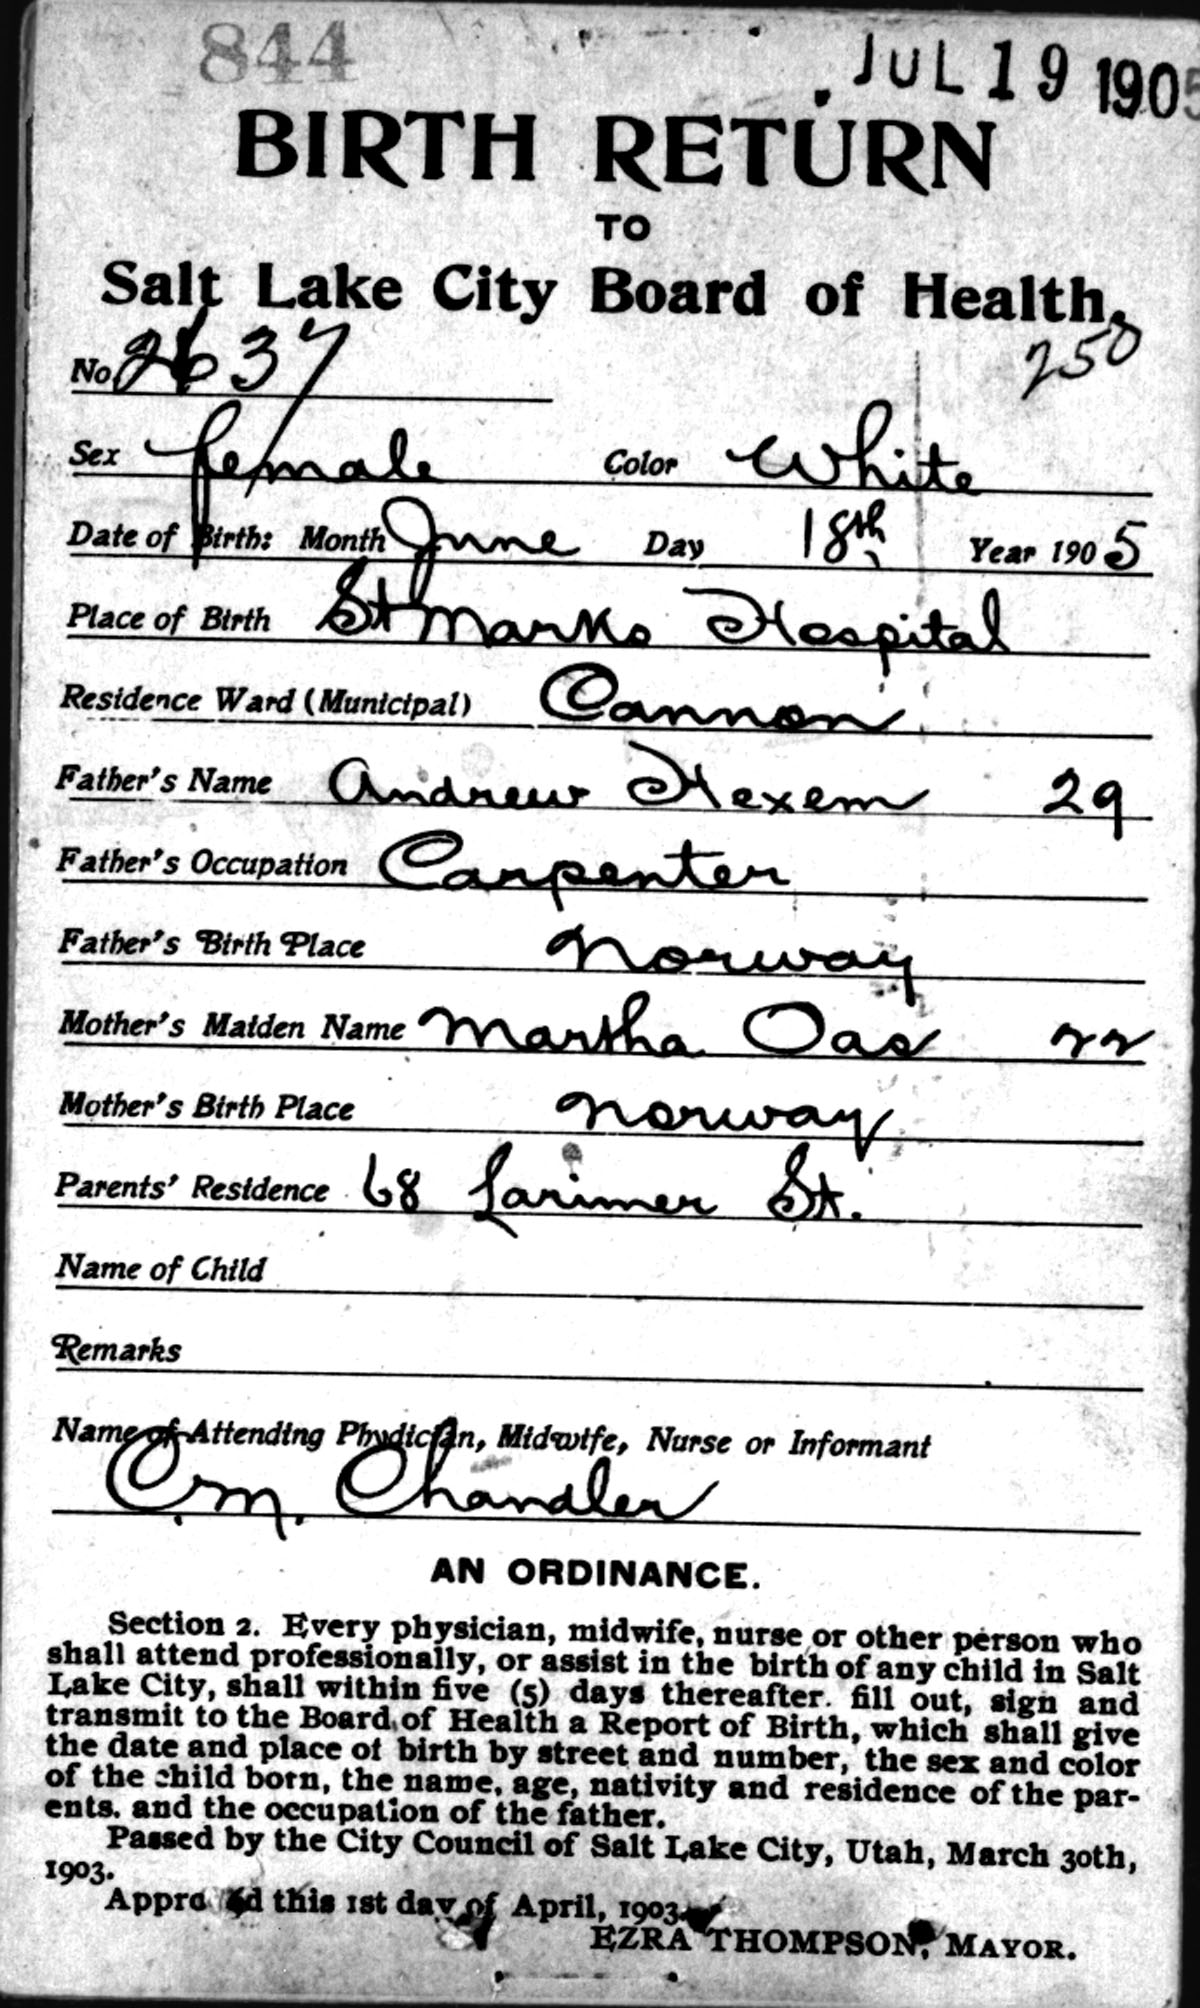 844
JUL 19 1905
BIRTH RETURN
TO
Salt Lake City Board of Health.
No. 2637
250
Sex female Color White
Date of Birth: Month June Day 18th Year 1905
Place of Birth St Marks Hospital
Residence Ward (Municipal) Cannon
Father's Name Andrew Hexem 29
Father's Occupation Carpenter
Father's Birth Place Norway
Mother's Maiden Name Martha Oas 22
Mother's Birth Place Norway
Parents' Residence 68 Larimer St.
Name of Child
Remarks
Name of Attending Phydician, Midwife, Nurse or Informant
C. M. Chandler
AN ORDINANCE.
Section 2. Every physician, midwife, nurse or other person who
shall attend professionally, or assist in the birth of any child in Salt
Lake City, shall within five (5) days thereafter. fill out, sign and
transmit to the Board of Health a Report of Birth, which shall give
the date and place of birth by street and number, the sex and color
of the child born, the name, age, nativity and residence of the par-
ents. and the occupation of the father.
Passed by the City Council of Salt Lake City, Utah, March 30th,
1903.
Approved this 1st day of April, 1903.
EZRA THOMPSON, MAYOR.